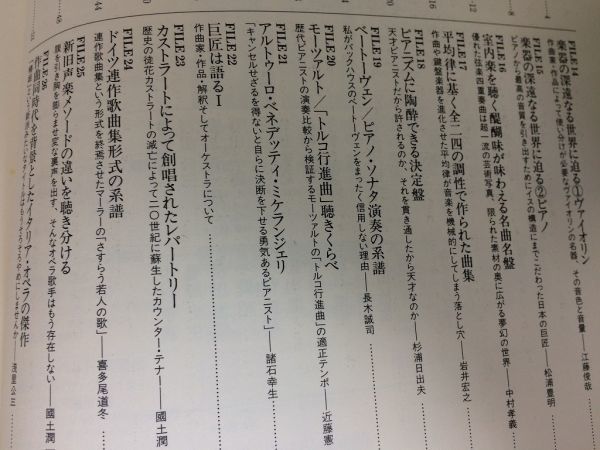 FILE 14
楽器の深遠なる世界に迫る①ヴァイオリン
作曲家・作品によって使い分けが必要なヴァイオリンの名器、その音色と音量――工藤俊哉
FILE 15
楽器の深遠なる世界に迫る②ピアノ
ピアノから最高の音質を引き出すためにイスの構造にまでこだわった日本の巨匠――松浦豊明
FILE 16
室内楽を聴く醍醐味が味わえる名曲名盤
優れた弦楽四重奏曲は超一流の芸術写真、限られた素材の奥に広がる夢幻の世界――中村孝義
FILE 17
平均律に基く全二四の調性で作られた曲集
作曲や鍵盤楽器を進化させた平均律が音楽を機械的にしてしまう落とし穴――岩井宏之
FILE 18
ピアニズムに陶酔できる決定盤
天才ピアニストだから許されるのか、それを貫き通したから天才なのか――杉浦日出夫
FILE 19
ベートーヴェン/ピアノ・ソナタ演奏の系譜
私がバックハウスのベートーヴェンをまったく信用しない理由――長木誠司
FILE 20
モーツァルト/「トルコ行進曲」聴きくらべ
歴代ピアニストの演奏比較から検証するモーツァルトの「トルコ行進曲」の適正テンポ――近藤憲一
FILE 21
アルトゥーロ・ベネデッティ・ミケランジェリ
「キャンセルせざるを得ないと自らに決断を下せる勇気あるピアニスト」――諸石幸生
FILE 22
巨匠は語るⅠ
作曲家・作品・解釈そしてオーケストラについて
FILE 23
カストラートによって創唱されたレパートリー
歴史の徒花カストラートの滅亡によって二〇世紀に蘇生したカウンター・テナー――國土潤一
FILE 24
ドイツ連作歌曲集形式の系譜
連作歌曲集という形式を終焉させたマーラーの「さすらう若人の歌」――喜多尾道冬
FILE 25
新旧声楽メソードの違いを聴き分ける
腹を引き胸を膨らませ変な裏声を出す、そんなオペラ歌手はもう存在しない――國土潤一
FILE 26
作曲同時代を背景としたイタリア・オペラの傑作
浅里公三